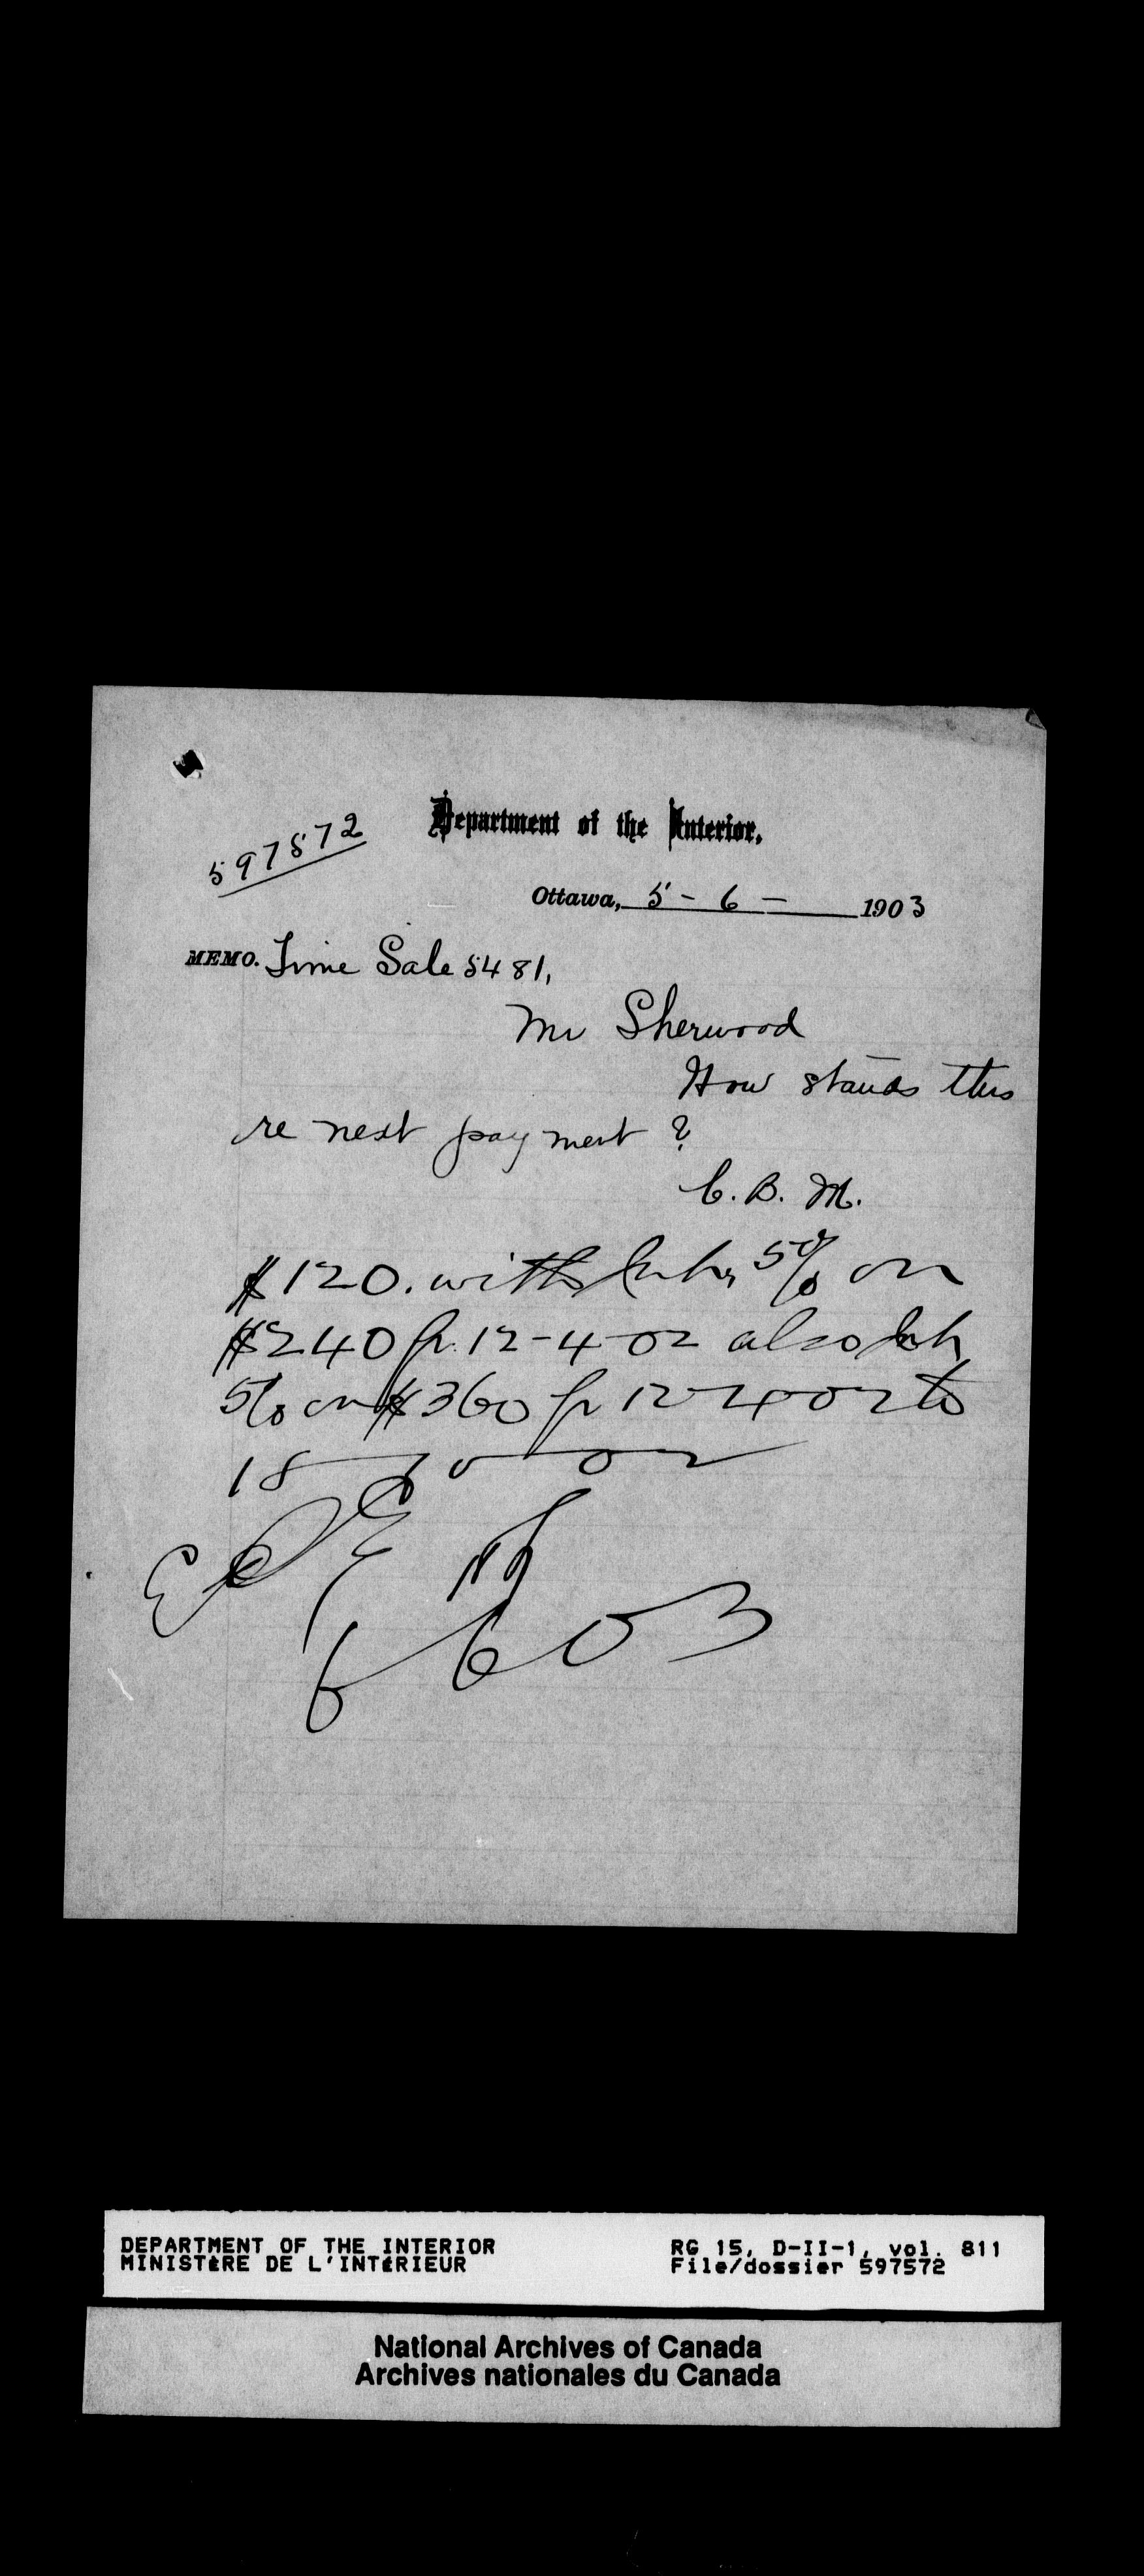 Department of the Interior.
597572
Ottawa, 5 - 6 - 1903
MEMO. Time Sale 5481,
Mr Sherwood
How stands this
re next payment ?
C. B. M.
$120. with Int. 5% on
$240 fr. 12-4-02 also Int
5% on $360 fr 12-4-02 to
18-10-02
6 6 03
DEPARTMENT OF THE INTERIOR
MINISTÈRE DE L'INTÉRIEUR
RG 15, D-II-1, vol. 811
File/dossier 597572
National Archives of Canada
Archives nationales du Canada